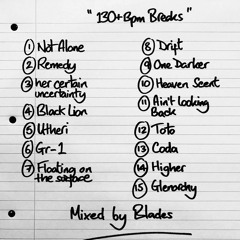 "130+Bpm Breaks"
1 Not Alone
2 Remedy
3 her certain
uncertainty
4 Black Lion
5 Utheri
6 Gr-1
7 Floating on
the surface
8 Drift
9 One Darker
10 Heaven Scent
11 Ain't Looking
Back
12 Toto
13 Coda
14 Higher
15 Glenorchy
Mixed by Blades